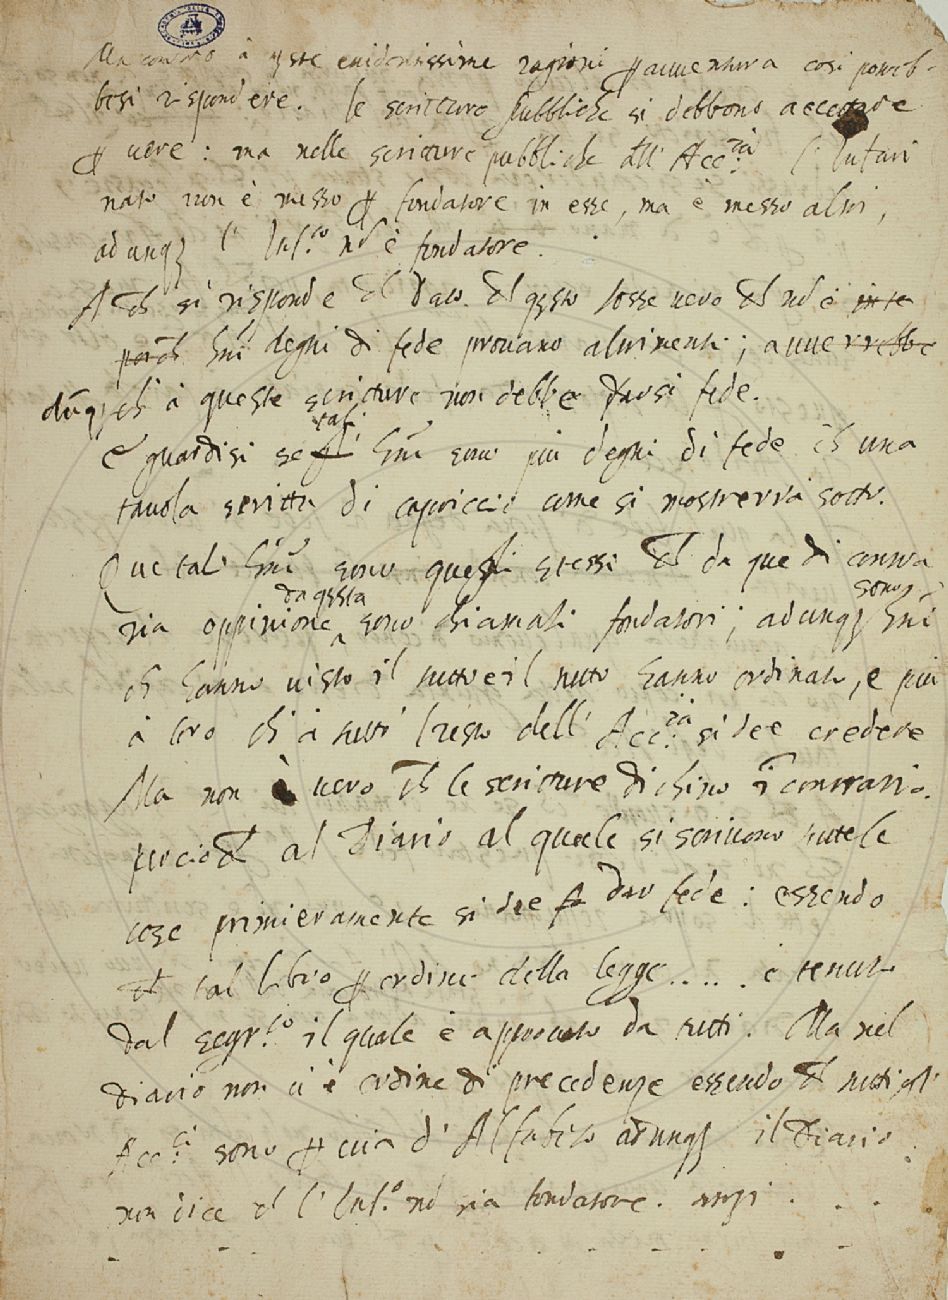 Ma contro à qste euidentissime ragioni ꝑauuentura cosi potreb-
besi rispondere. le scritture pubbliche si debbono accettare
ꝑ uere: ma nelle scritture pubbliche dll' Acc.ia l' Infari
nato non è messo ꝑ fondatore in esse, ma è messo altri,
adunqꝫ l' Inf.to nō è fondatore.
A ch si risponde ch dato ch qsto fosse uero ch nō è in te
perch hīn degni di fede prouano altrimenti; auuerrebbe
dūqꝫ ch à queste scritture non debbe darsi fede.
e guardisi se tali hīn sono piu degni di fede ch una
tauola scritta di capriccio come si mostrerrà sotto.
Que tali hīn sono questi stessi ch da que di contra
ria oppinione da qsta sono chiamati fondatori; adunqꝫ sono hīn
ch hanno uisto il tutto e il tutto hanno ordinato, e piu
à loro ch à tutti l resto dell' Acc.ia si dee credere
Ma non è uero ch le scritture dichino ī contrario.
percioch al Diario al quale si scriuono tutte le
cose primieramente si dee dar fede: essendo
ch tal libro ꝑ ordine della legge..... è tenuto
dal segr.to il quale è approuato da tutti. Ma nel
diario non ui è ordine di precedenze essendo ch tutti gli
Acc.ci sono ꝑ uia d' Alfabeto adunqꝫ il Diario
non dice ch l' Inf.o nō sia fondatore. anzi . . .